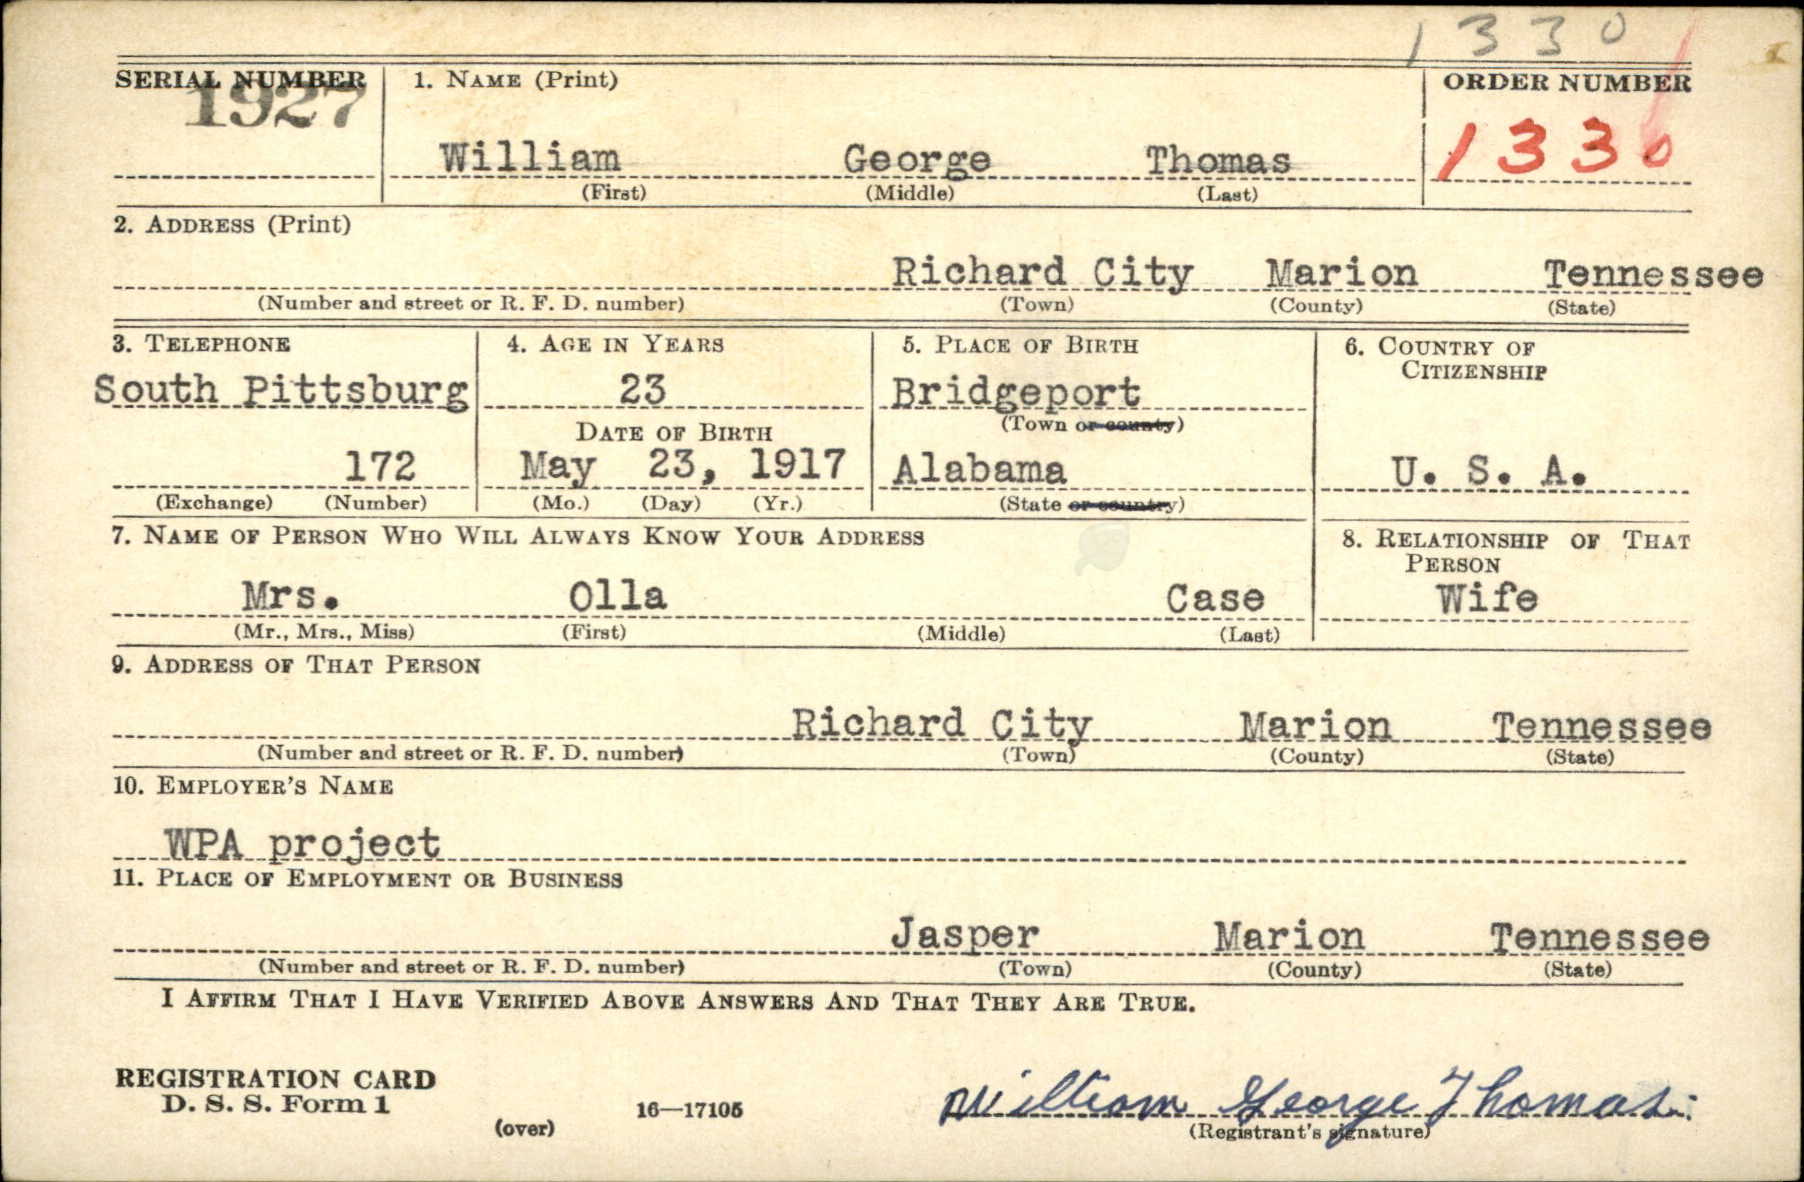 1330
SERIAL NUMBER 1. NAME (Print) ORDER NUMBER
1927
William George Thomas 1330
(First) (Middle) (Last)
2. ADDRESS (Print)
Richard City Marion Tennessee
(Number and street or R. F. D. number) (Town) (County) (State)
3. TELEPHONE 4. AGE IN YEARS 5. PLACE OF BIRTH 6. COUNTRY OF
CITIZENSHIP
South Pittsburg 23 Bridgeport
(Town or county)
DATE OF BIRTH
172 May 23, 1917 Alabama U. S. A.
(Exchange) (Number) (Mo.) (Day) (Yr.) (State or country)
7. NAME OF PERSON WHO WILL ALWAYS KNOW YOUR ADDRESS 8. RELATIONSHIP OF THAT
PERSON
Mrs. Olla Case Wife
(Mr., Mrs., Miss) (First) (Middle) (Last)
9. ADDRESS OF THAT PERSON
Richard City Marion Tennessee
(Number and street or R. F. D. number) (Town) (County) (State)
10. EMPLOYER'S NAME
WPA project
11. PLACE OF EMPLOYMENT OR BUSINESS
Jasper Marion Tennessee
(Number and street or R. F. D. number) (Town) (County) (State)
I AFFIRM THAT I HAVE VERIFIED ABOVE ANSWERS AND THAT THEY ARE TRUE.
REGISTRATION CARD
D. S. S. Form 1 16—17105 William George Thomas.
(over) (Registrant's signature)